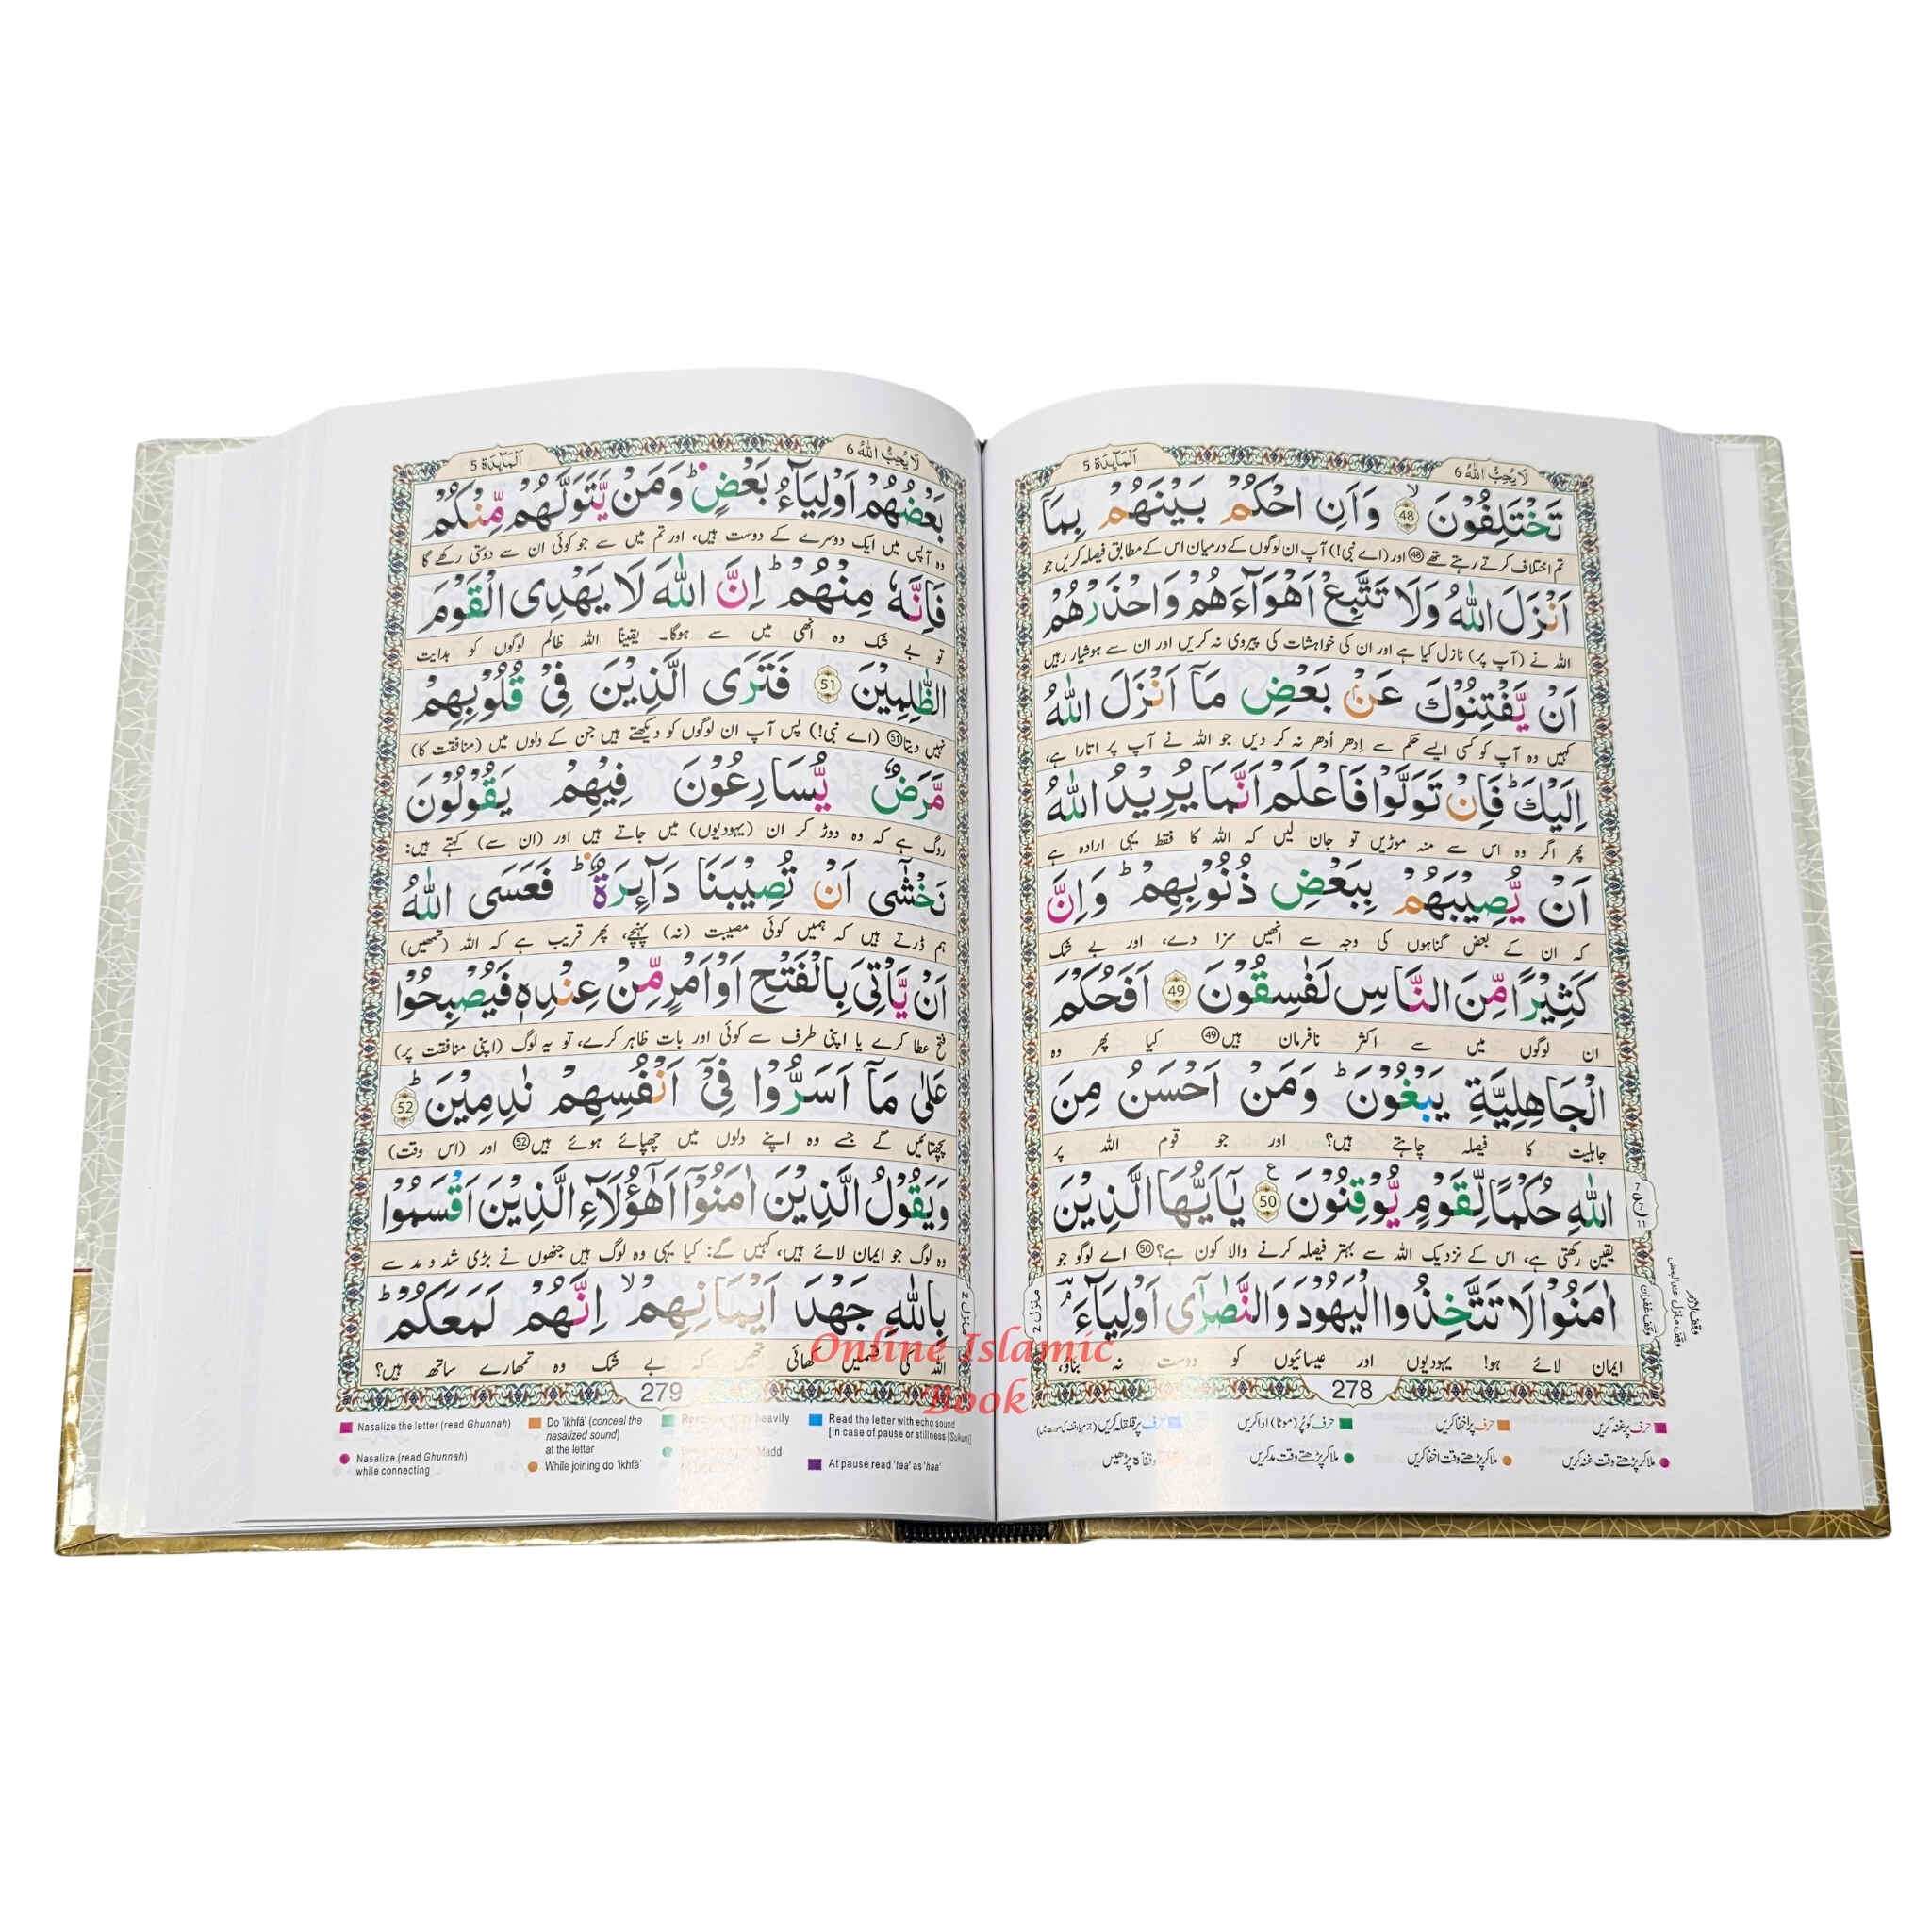 اَلْمَآىِٕدَة 5
لَا يُحِبُّ اللّٰهُ 6
تَخْتَلِفُوْنَ ۙ 48 وَاَنِ احْكُمْ بَيْنَهُمْ بِمَآ
تم اختلاف کرتے رہتے تھے 48 اور (اے نبی!) آپ ان لوگوں کے درمیان اس کے مطابق فیصلہ کریں جو
اَنْزَلَ اللّٰهُ وَلَا تَتَّبِعْ اَهْوَآءَهُمْ وَاحْذَرْهُمْ
اللہ نے (آپ پر) نازل کیا ہے اور ان کی خواہشات کی پیروی نہ کریں اور ان سے ہوشیار رہیں
اَنْ يَّفْتِنُوْكَ عَنْۢ بَعْضِ مَآ اَنْزَلَ اللّٰهُ
کہیں وہ آپ کو کسی ایسے حکم سے اِدھر اُدھر نہ کر دیں جو اللہ نے آپ پر اتارا ہے،
اِلَيْكَ ؕ فَاِنْ تَوَلَّوْا فَاعْلَمْ اَنَّمَا يُرِيْدُ اللّٰهُ
پھر اگر وہ اس سے منہ موڑیں تو جان لیں کہ اللہ کا فقط یہی ارادہ ہے
اَنْ يُّصِيْبَهُمْ بِبَعْضِ ذُنُوْبِهِمْ ؕ وَاِنَّ
کہ ان کے بعض گناہوں کی وجہ سے انھیں سزا دے، اور بے شک
كَثِيْرًا مِّنَ النَّاسِ لَفٰسِقُوْنَ 49 اَفَحُكْمَ
ان لوگوں میں سے اکثر نافرمان ہیں 49 کیا پھر وہ
الْجَاهِلِيَّةِ يَبْغُوْنَ ؕ وَمَنْ اَحْسَنُ مِنَ
جاہلیت کا فیصلہ چاہتے ہیں؟ اور جو قوم اللہ پر
اللّٰهِ حُكْمًا لِّقَوْمٍ يُّوْقِنُوْنَ 50 ع يٰٓاَيُّهَا الَّذِيْنَ
یقین رکھتی ہے، اس کے نزدیک اللہ سے بہتر فیصلہ کرنے والا کون ہے؟ 50 اے لوگو جو
اٰمَنُوْا لَا تَتَّخِذُوا الْيَهُوْدَ وَالنَّصٰرٰٓى اَوْلِيَآءَ ۘ
ایمان لائے ہو! یہودیوں اور عیسائیوں کو دوست نہ بناؤ،
وقف لازم
وقف غفران
منزل 2
278
حرف پر غنہ کریں
حرف پر اخفا کریں
حرف کو پُر (موٹا) ادا کریں
حرف پر قلقلہ کریں
ملا کر پڑھتے وقت غنہ کریں
ملا کر پڑھتے وقت اخفا کریں
ملا کر پڑھتے وقت مد کریں
اَلْمَآىِٕدَة 5
لَا يُحِبُّ اللّٰهُ 6
بَعْضُهُمْ اَوْلِيَآءُ بَعْضٍ ؕ وَمَنْ يَّتَوَلَّهُمْ مِّنْكُمْ
وہ آپس میں ایک دوسرے کے دوست ہیں، اور تم میں سے جو کوئی ان سے دوستی رکھے گا
فَاِنَّهٗ مِنْهُمْ ؕ اِنَّ اللّٰهَ لَا يَهْدِى الْقَوْمَ
تو بے شک وہ انھی میں سے ہوگا۔ یقیناً اللہ ظالم لوگوں کو ہدایت
الظّٰلِمِيْنَ 51 فَتَرَى الَّذِيْنَ فِىْ قُلُوْبِهِمْ
نہیں دیتا 51 (اے نبی!) پس آپ ان لوگوں کو دیکھتے ہیں جن کے دلوں میں (منافقت کا)
مَّرَضٌ يُّسَارِعُوْنَ فِيْهِمْ يَقُوْلُوْنَ
روگ ہے کہ وہ دوڑ کر ان (یہودیوں) میں جاتے ہیں اور (ان سے) کہتے ہیں:
نَخْشٰٓى اَنْ تُصِيْبَنَا دَآىِٕرَةٌ ؕ فَعَسَى اللّٰهُ
ہم ڈرتے ہیں کہ ہمیں کوئی مصیبت (نہ) پہنچے، پھر قریب ہے کہ اللہ (تمھیں)
اَنْ يَّاْتِىَ بِالْفَتْحِ اَوْ اَمْرٍ مِّنْ عِنْدِهٖ فَيُصْبِحُوْا
فتح عطا کرے یا اپنی طرف سے کوئی اور بات ظاہر کرے، تو یہ لوگ (اپنی منافقت پر)
عَلٰى مَآ اَسَرُّوْا فِىْٓ اَنْفُسِهِمْ نٰدِمِيْنَ ؕ 52
پچھتائیں گے جسے وہ اپنے دلوں میں چھپائے ہوئے ہیں 52 اور (اس وقت)
وَيَقُوْلُ الَّذِيْنَ اٰمَنُوْٓا اَهٰٓؤُلَآءِ الَّذِيْنَ اَقْسَمُوْا
وہ لوگ جو ایمان لائے ہیں، کہیں گے: کیا یہی وہ لوگ ہیں جنھوں نے بڑی شد و مد سے
بِاللّٰهِ جَهْدَ اَيْمَانِهِمْ ۙ اِنَّهُمْ لَمَعَكُمْ ؕ
اللہ کی قسمیں کھائی تھیں کہ بے شک وہ تمھارے ساتھ ہیں؟
منزل 2
279
Nasalize the letter (read Ghunnah)
Do 'ikhfâ' (conceal the nasalized sound) at the letter
heavily
Read the letter with echo sound [in case of pause or stillness (Sukun)]
Nasalize (read Ghunnah) while connecting
While joining do 'ikhfâ'
Madd
At pause read 'taa' as 'haa'
Online Islamic
Book